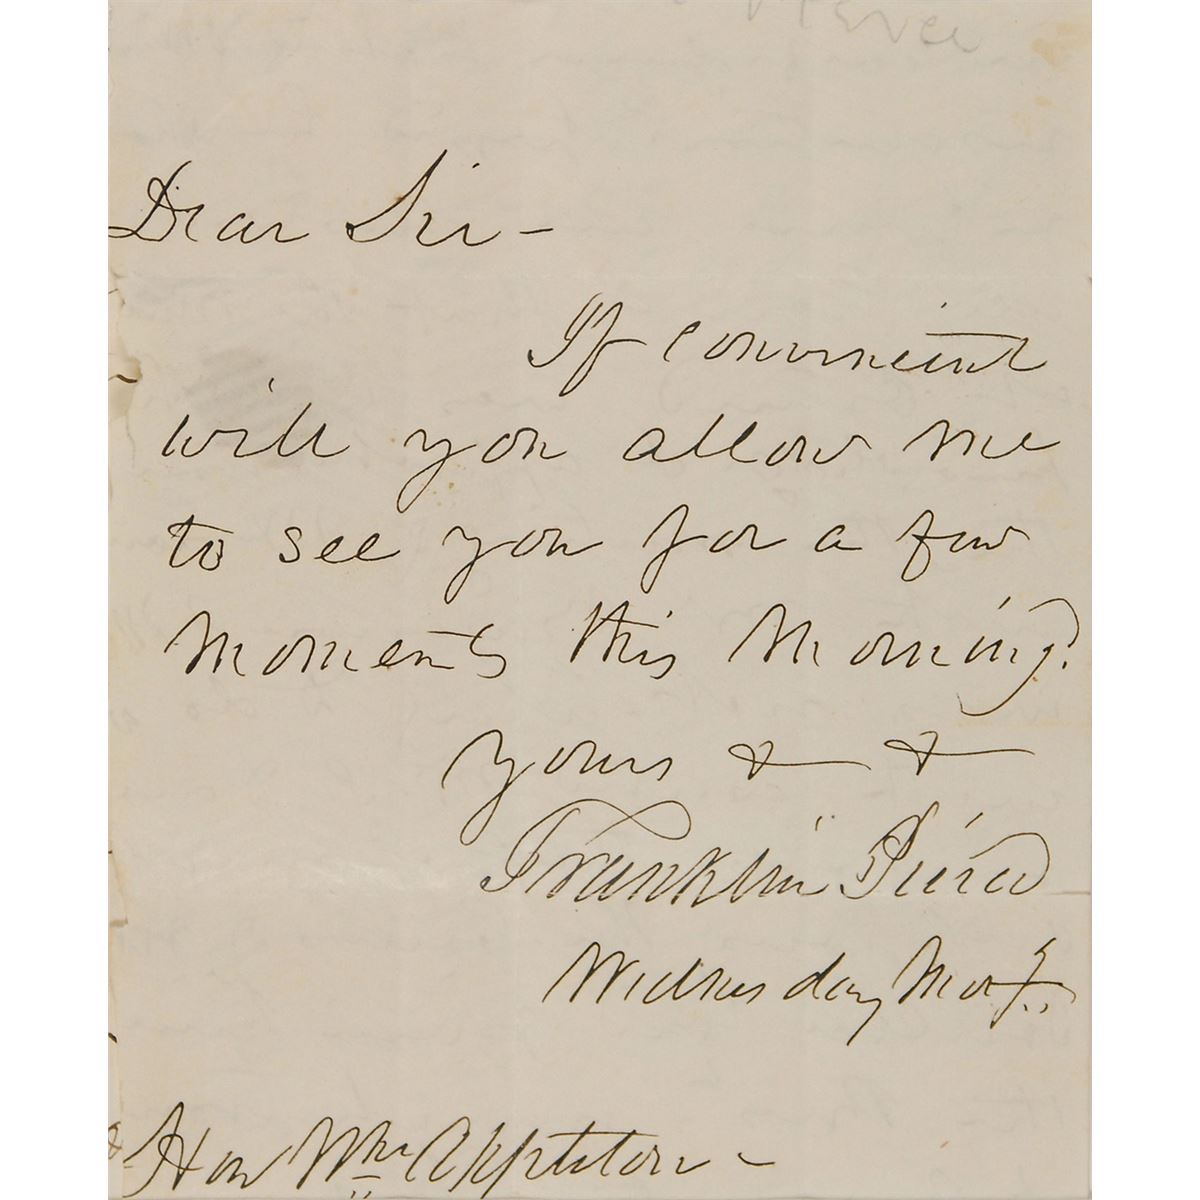 Pierce
Dear Sir -
If convenient
will you allow me
to see you for a few
moments this morning?
Yours & &
Franklin Pierce
Wednesday Mor.g
Hon Wm Appleton -